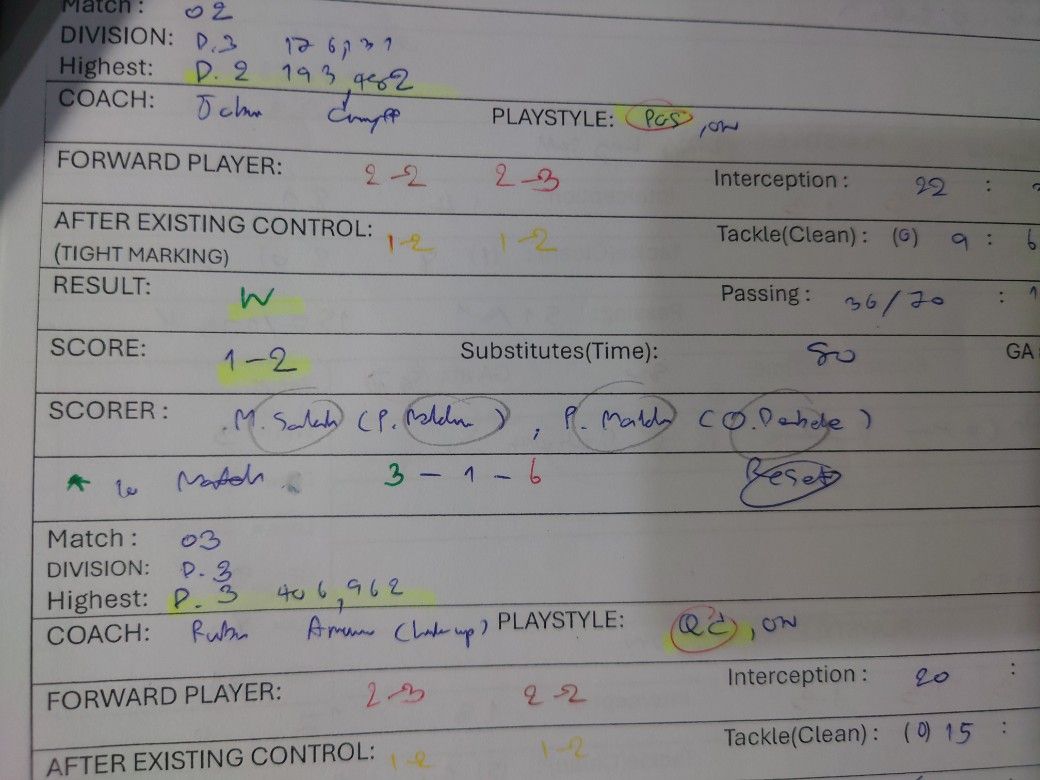 Match: 02
DIVISION: D.3
Highest: D. 2 193,982
COACH: PLAYSTYLE: PCS, ON
FORWARD PLAYER: 2-2 2-3 Interception: 22 :
AFTER EXISTING CONTROL: 1-2 1-2 Tackle(Clean): (0) 9 : 6
(TIGHT MARKING)
RESULT: W Passing: 36/70 :
SCORE: 1-2 Substitutes(Time): 80 GA
SCORER: M. Salah (P. ), P. (O. )
Match 3 - 1 - 6 Reset
Match: 03
DIVISION: D.3
Highest: D. 3 406,962
COACH: PLAYSTYLE: QC, ON
FORWARD PLAYER: 2-3 2-2 Interception: 20 :
AFTER EXISTING CONTROL: 1-2 1-2 Tackle(Clean): (0) 15 :